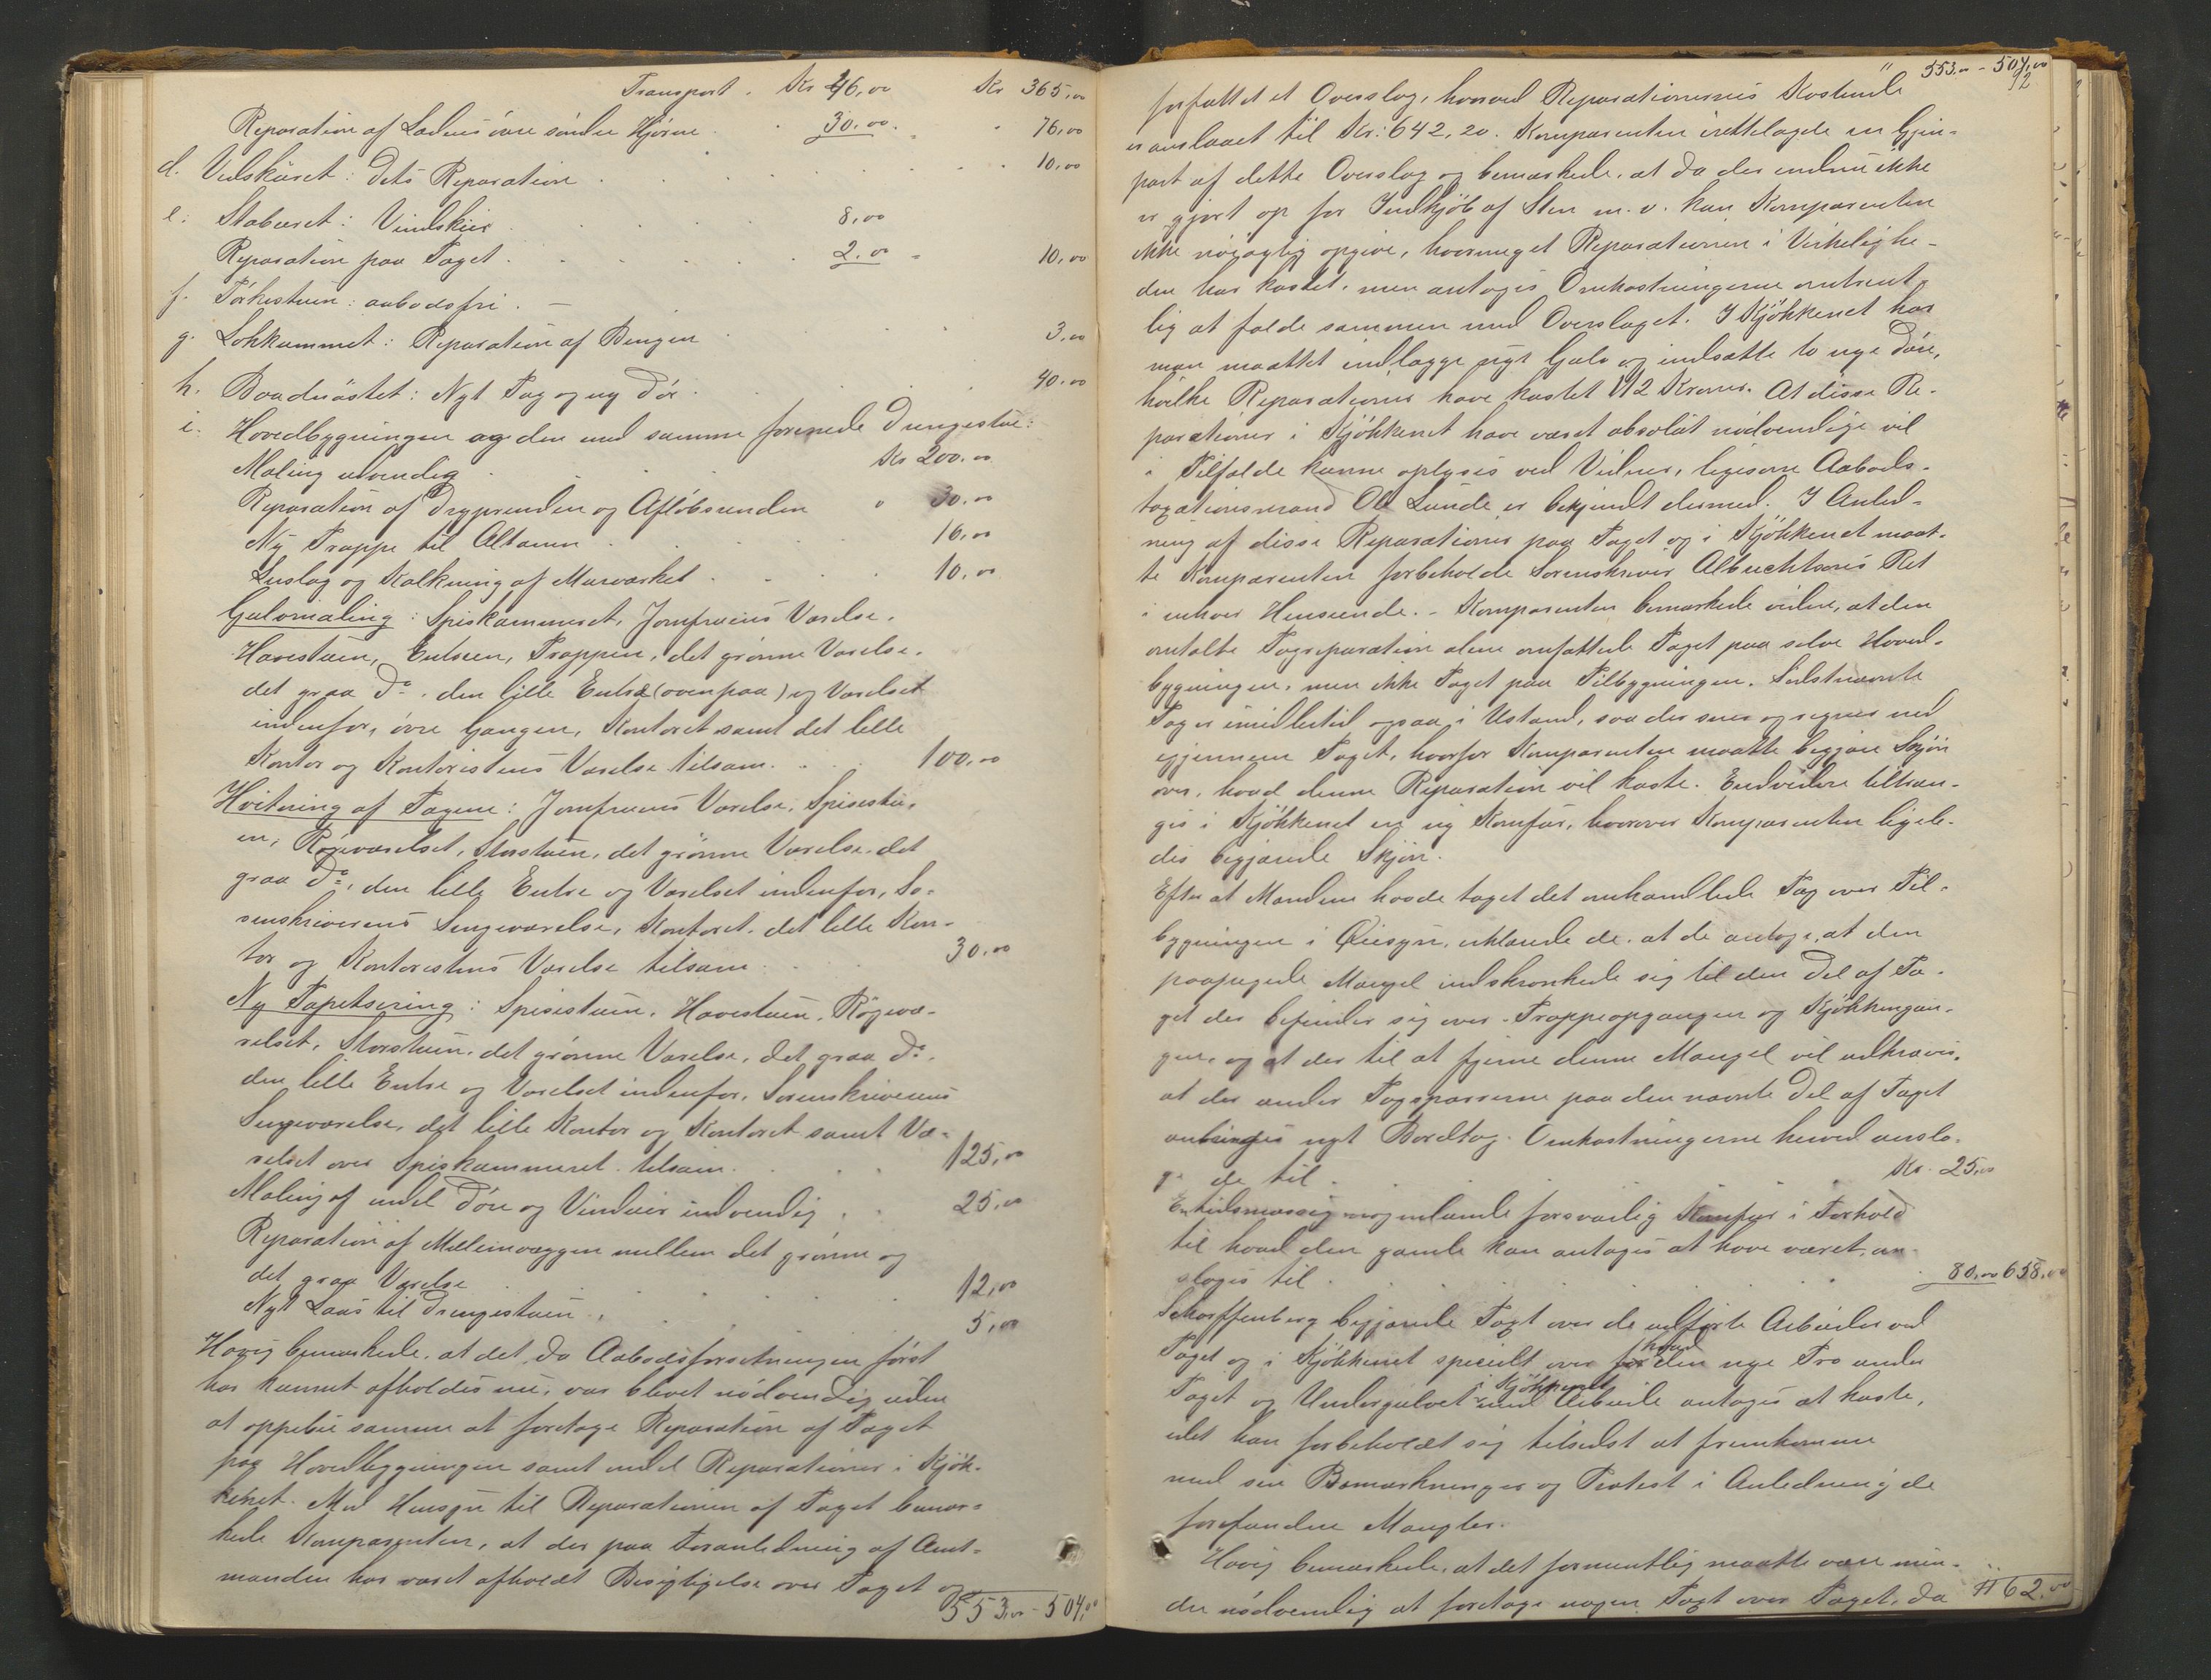 Transport . Kr 46,00 Kr 365,00
Reparation af Ladens övre söndre Hjörne . . 30.00. " " 76,00
d. Vedskuret: Dets Reparation . . . . . . . 10,00
e: Staburet: Vindskier . . . . . 8,00
Reparation paa Taget . . . . . . 2,00 " 10,00
f. Törkestuen: aabodsfri. —
g. Lokkummet: Reparation af Bingen . . . . 3,00
h. Baadnöstet: Nyt Tag og ny Dör . . . . 40.00
i. Hovedbygningen og den med samme forenede Drengestue:
Maling udvendig . . . . Kr 200.00
Reparation af Drypprenden og Aflöbsrenden " 30.00
Ny Trappe til Altanen . . . . 16,00
Luslag og Kalkning af Murværket . . . . 10,00
Gulvmaling: Spiskammeret, Jomfruens Værelse,
Havestuen, Entreen, Trappen, det grönne Værelse,
det graa Do, den lille Entre (ovenpaa) og Værelset
indenfor, övre Gangen, Kontoret samt det lille
Kontor og Kontoristens Værelse tilsam. . . 100,00
Hvitning af Tagene: Jomfruens Værelse, Spisestu-
en, Rögeværelset, Storstuen, det grönne Værelse, det
graa Do, den lille Entre og Værelset indenfor, So-
renskriverens Sengeværelse, Kontoret, det lille Kon-
tor og Kontoristens Værelse tilsam. . . . 30,00
Ny Tapetsering: Spisestuen, Havestuen, Rögevæ-
relset, Storstuen, det grönne Værelse, det graa Do,
den lille Entre og Værelset indenfor, Sorenskriverens
Sengeværelse, det lille Kontor og Kontoret samt Væ-
relset over Spiskammeret tilsam. . . . 125,00
Maling af endel Döre og Vinduer indvendig . . 25,00
Reparation af Mellemvæggen mellem det grönne og
det graa Værelse . . . . . 12,00
Nyt Laas til Drengestuen . . . . . 5,00
Hovig bemærkede, at det, da Aabodsforretningen först
har kunnet afholdes nu, var blevet nödvendig uden
at oppebie samme at foretage Reparation af Taget
paa Hovedbygningen samt endel Reparationer i Kjök-
kenet. Med Hensyn til Reparationen af Taget bemær-
kede Komparenten, at der paa Foranledning af Amt-
manden har været afholdt Besigtigelse over Taget og
553,00 - 504,00
" 553.00 - 504,00
92
forfattet et Overslag, hvorved Reparationernes Kostende
er anslaaet til Kr: 642,20. Komparenten irettelagde en Gjen-
part af dette Overslag og bemærkede, at da der endnu ikke
er gjort op for Indkjöb af Sten m. v. kan Komparenten
ikke nöiagtig opgive, hvormeget Reparationen i Virkelighe-
den har kostet, men antages Omkostningerne omtrent-
lig at falde sammen med Overslaget. I Kjökkenet har
man maattet indlægge nyt Gulv og indsætte to nye Döre,
hvilke Reparationer have kostet 112 Kroner. At disse Re-
parationer i Kjökkenet have været absolut nödvendige vil
i Tilfælde kunne oplyses ved Vidner, ligesom Aabods-
taxationsmand Ole Lunde er bekjendt dermed. I Anled-
ning af disse Reparationer paa Taget og i Kjökkenet maat-
te Komparenten forbeholde Sorenskriver Albrechtsons Ret
i enhver Henseende. - Komparenten bemærkede videre, at den
omtalte Tagreparation alene omfattede Taget paa selve Hoved-
bygningen, men ikke Taget paa Tilbygningen. Sidstnævnte
Tag er imidlertid ogsaa i Ustand, saa der sner og regner ned
igjennem Taget, hvorfor Komparenten maatte begjære Skjön
over, hvad denne Reparation vil koste. Endvidere tiltræn-
ges i Kjökkenet en ny Komfur, hvorover Komparenten ligele-
des begjærede Skjön.
Efter at Mændene havde taget det omhandlede Tag over Til-
bygningen i Öiesyn, erklærede de, at de antoge, at den
paapegede Mangel indskrænkede sig til den Del af Ta-
get der befinder sig over Trappeopgangen og Kjökkengan-
gen, og at der til at fjerne denne Mangel vil udkræves,
at der under Tagsparrerne paa den nævnte Del af Taget
anbringes nyt Bordtag. Omkostningerne herved anslo-
ge de til . . . . . . . Kr. 25,00
En tidsmæssig nogenlunde forsvarlig Komfur i Forhold
til hvad den gamle kan antages at have været, an-
sloges til . . . . . . . 80,00 658,00
Scharffenberg begjærede Taxt over de udförte Arbeider ved
Taget og i Kjökkenet specielt over hvad den nye Tro under
Taget og Undergulvet i Kjökkenet med Arbeide antages at koste,
idet han forbeholdt sig tilsidst at fremkomme
med sine Bemærkninger og Protest i Anledning de
forefundne Mangler.
Hovig bemærkede, at det formentlig maatte være min-
dre nödvendig at foretage nogen Taxt over Taget, da 1162.00